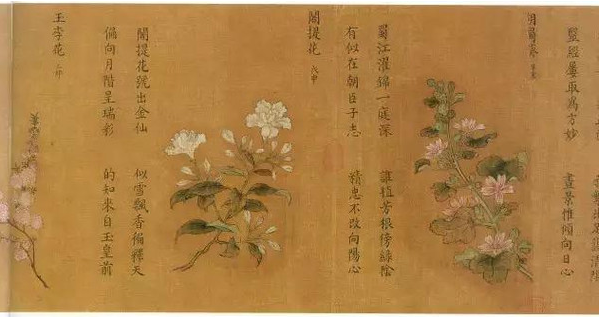 經屢取為方妙
盡景惟傾向日心
蜀江濯錦一庭深
誰植芳根傍綠陰
有似在朝臣子志
精忠不改向陽心
闍提花 戊申
闍提花號出金仙
似雪飄香徧釋天
偏向月階呈瑞彩
的知來自玉皇前
玉李花